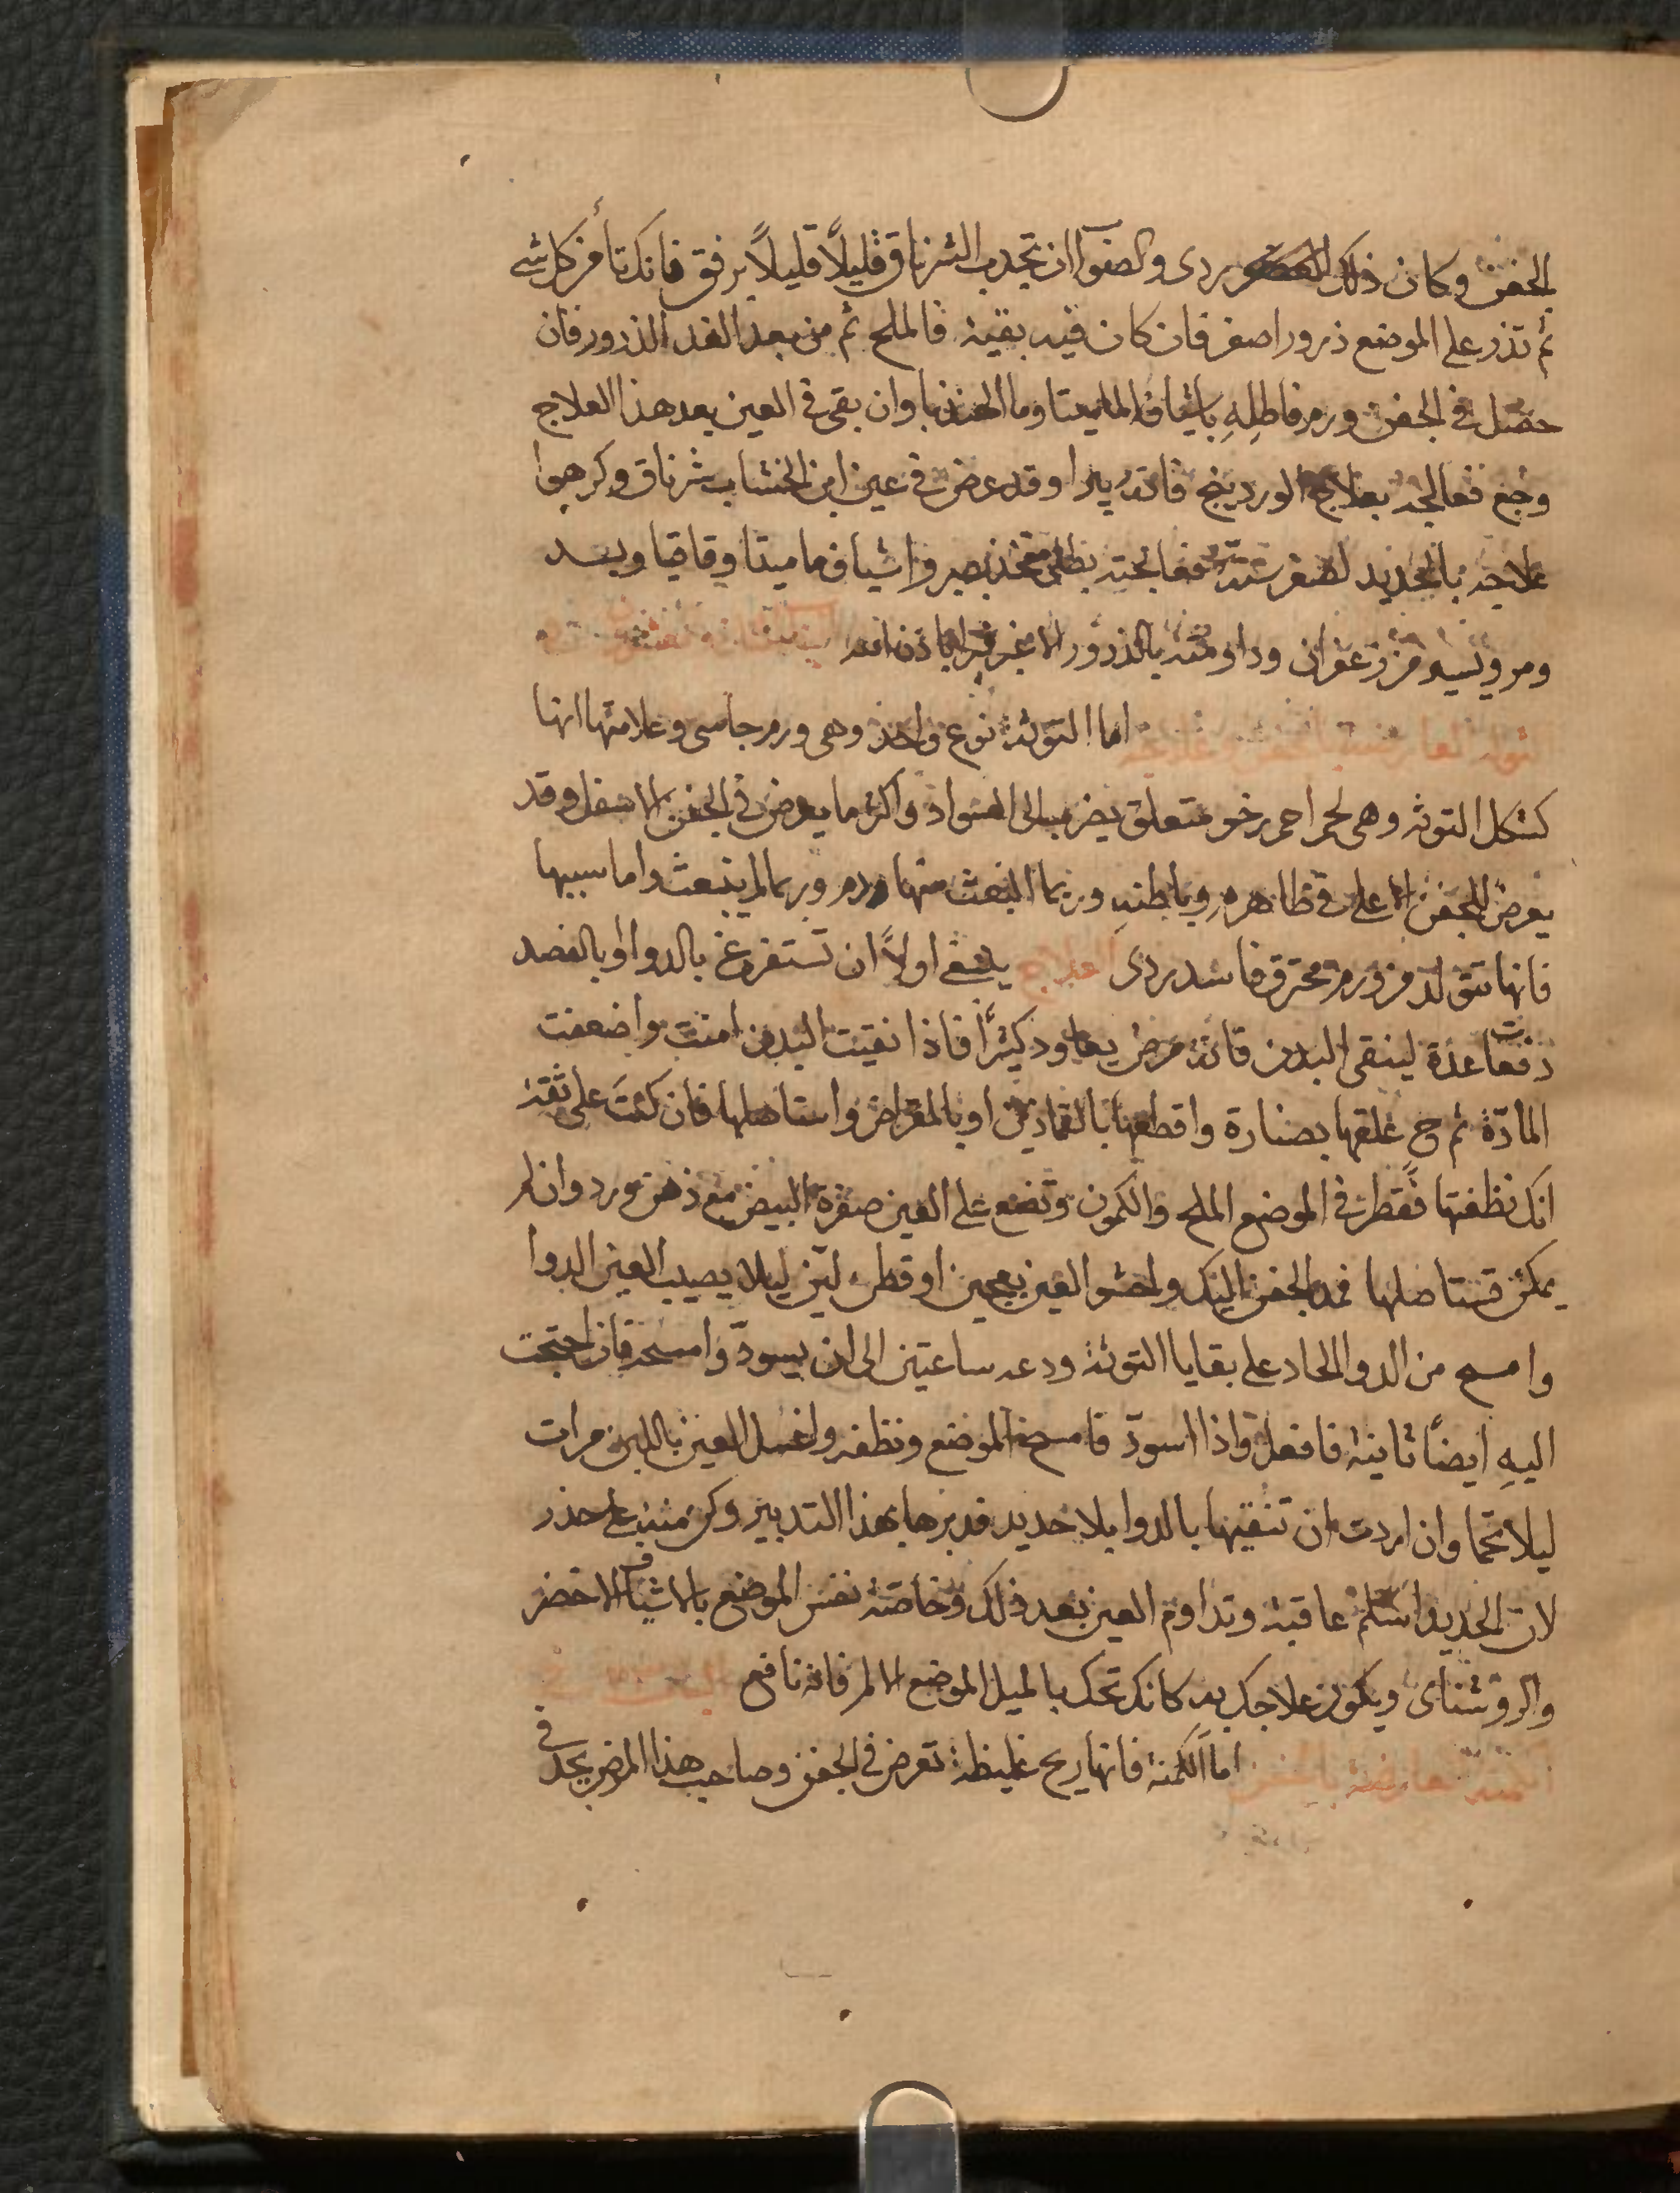 الجفن وكان ذلك ردى والصواب ان تجذب الشرناق قليلاً قليلاً برفق فانك تأمن كل شى
ثم تذر على الموضع ذرور اصفر فان كان فيه بقية فالملح ثم من بعد الغد الذرور فان
حصل فى الجفن ورم فاطلِهِ باشياف الماميثا وما الهندبا وان بقى فى العين بعد هذا العلاج
وجع فعالجه بعلاج الوردينج فانه يبرا وقد عرض فى عين ابن الخشاب شرناق وكرهوا
علاجه بالحديد لصغر سنه فعالجته بطلى متخذ بصبر واشياف ماميثا وقاقيا
ومر ويسير من زعفران وداومته بالذرور الاغبر فبرا باذن الله
اما التوثة نوع واحد وهى ورم جاسى وعلامتها انها
كشكل التوثه وهى لحم احمر رخو متعلق يضرب الى السواد واكثر ما يعرض فى الجفن الاسفل وقد
يعرض للجفن الاعلى فى ظاهرهِ وباطنهِ وربما انبعث منها دم وربما لم ينبعث واما سببها
فانها تتولد من ورم محترق فاسد ردى العلاج ينبغى اولاً ان تستفرغ بالدوا او بالفصد
دفعات عدة لينقى البدن فانه مرض يعاود كثيرًا فاذا نقيت البدن امنت واضعفت
المادّة ثم ح علقها بصنارة واقطعها بالقمادين او بالمقراض واستاصلها فان كنت على ثقة
انك نظفتها فقطر فى الموضع الملح والكمون وتضع على العين صفرة البيض مع دهن ورد وان لم
يمكن تستاصلها فمد الجفن اليك واحشو العين بعجين او قطن لين ليلا يصيب العين الدوا
وامسح من الدوا الحاد على بقايا التوثة ودعه ساعتين الى ان يسودّ وامسحه فان احتجت
اليهِ ايضًا ثانية فافعل واذا اسودّ فامسح الموضع ونظفه واغسل العين باللبن مرات
ليلا تحما وان اردت ان تنقيها بالدوا بلا حديد فدبرها بهذا التدبير وكن منه على حذر
لان الحديد اسلم عاقبة وتداوم العين بعد ذلك وخاصة نفس الموضع بالاشياف الاخضر
والروشناى ويكون علاجك به كانك تحك بالميل الموضع الالم فانه نافع
الكمنة العارضة بالجفن اما الكمنة فانها ريح غليظة تعرض فى الجفن وصاحب هذا المرض يجد فى